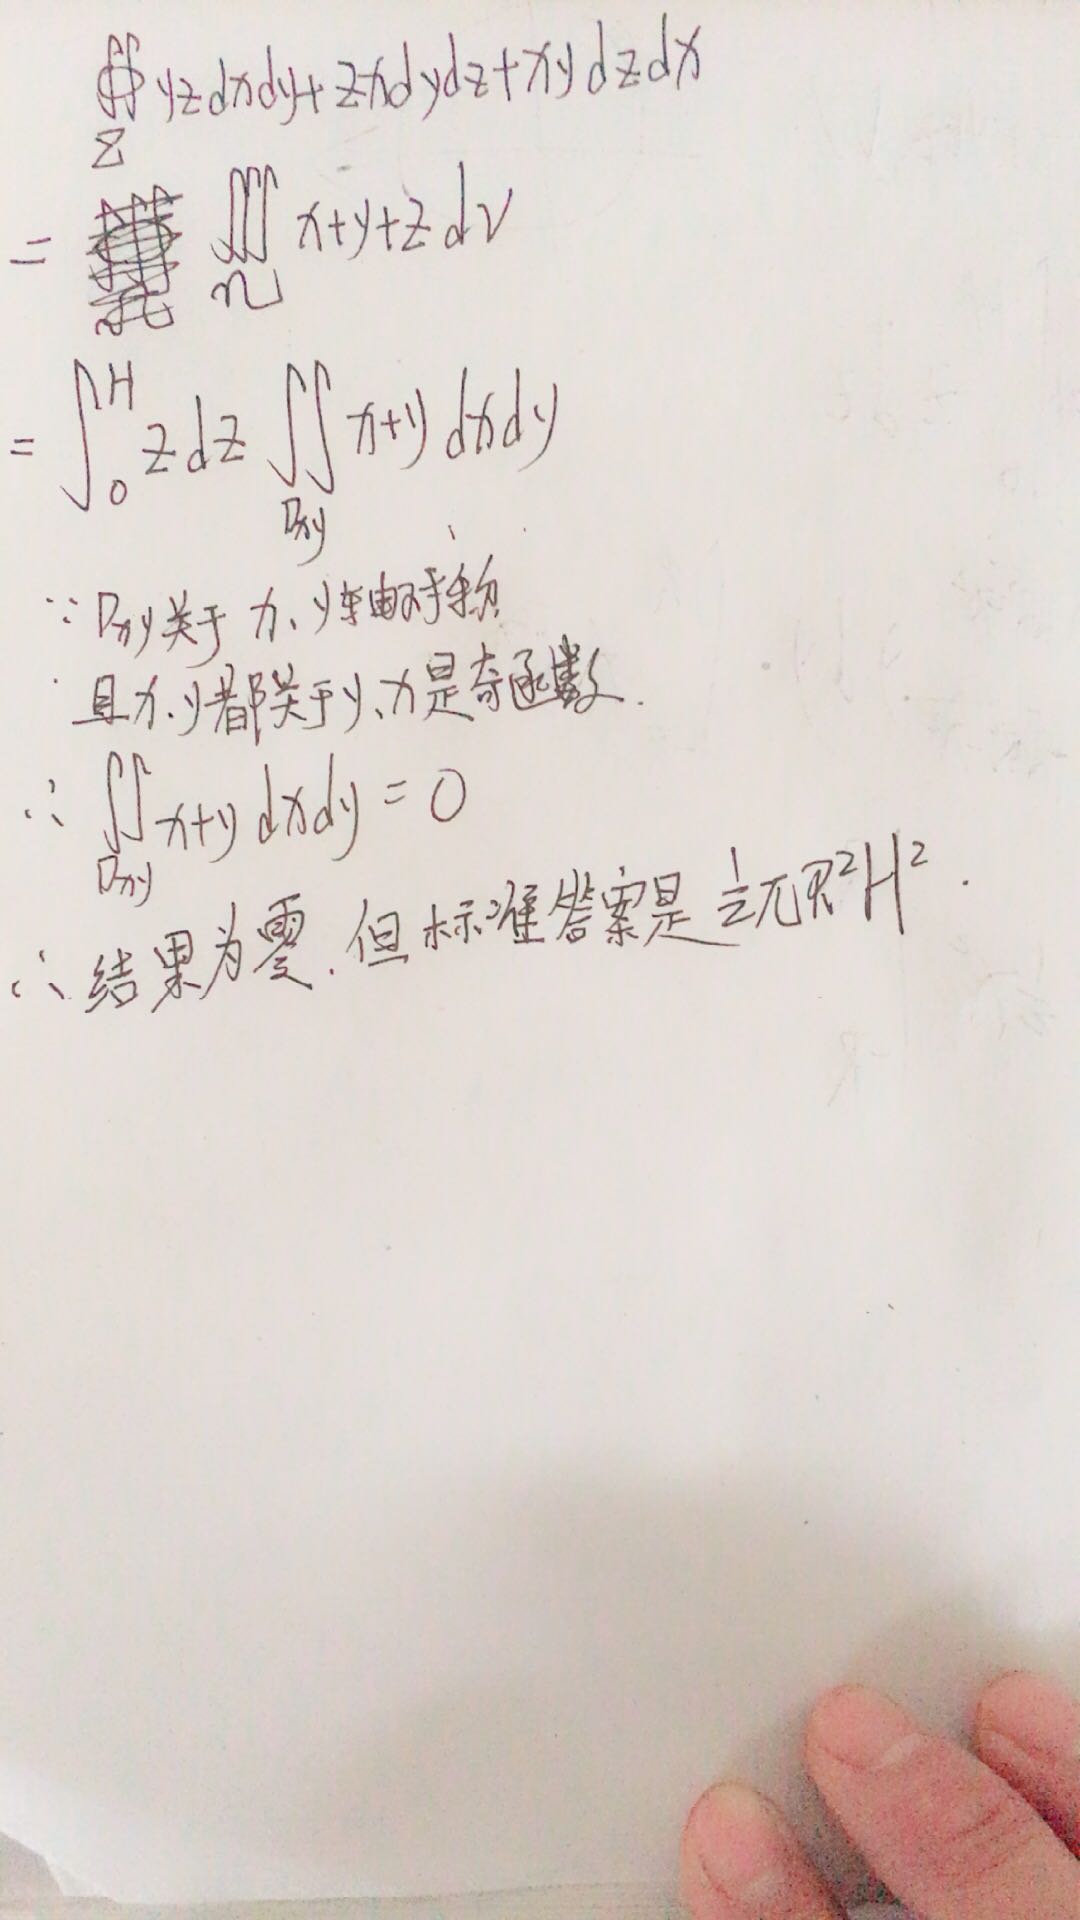 ∯_Σ yzdxdy+zxdydz+xydzdx
= ∭_Ω x+y+z dv
= ∫₀ᴴ zdz ∬_Dxy x+y dxdy
∵ Dxy关于x、y轴对称
且x、y都关于y、x是奇函数.
∴ ∬_Dxy x+y dxdy = 0
∴ 结果为零. 但标准答案是 ½πR²H² .